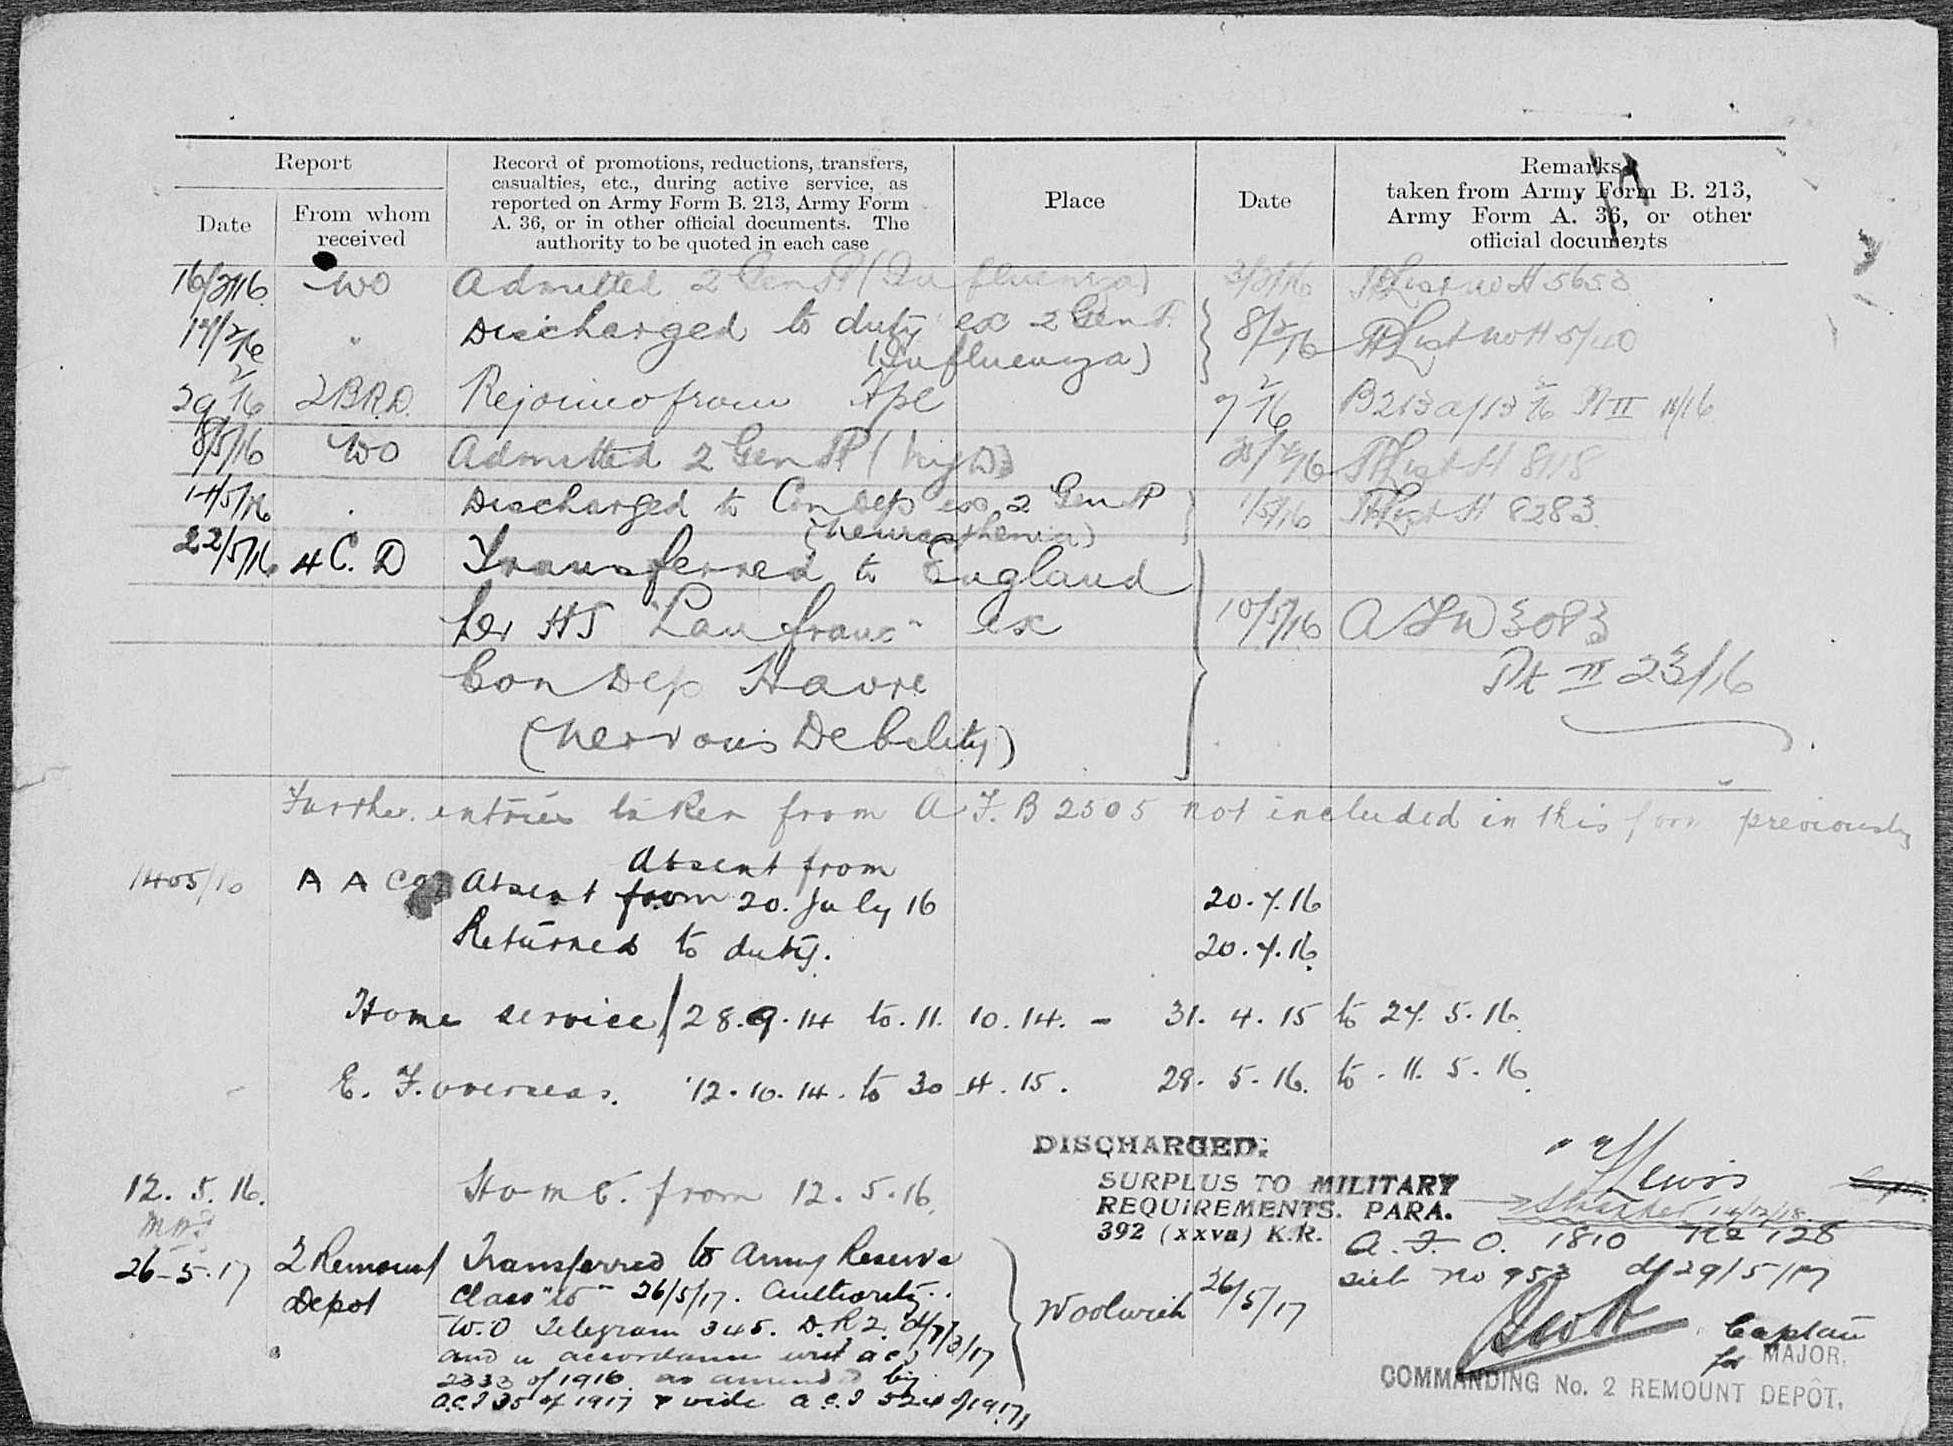 Report
Record of promotions, reductions, transfers,
casualties, etc., during active service, as
reported on Army Form B. 213, Army Form
A. 36, or in other official documents. The
authority to be quoted in each case
Place
Date
Remarks
taken from Army Form B. 213,
Army Form A. 36, or other
official documents
Date
From whom
received
16/2/16 WO Admitted 2 Gen H (Influenza) 3/2/16 H List no H 5653
17/2/16 " Discharged to duty ex 2 Gen H. 8/2/16 H List no H 5/40
(Influenza)
29 2/16 2 B.R.D. Rejoined from Hpl 9 2/16 B213 d/13 2/16 Pt II 11/16
8/5/16 WO Admitted 2 Gen H ( H List H 8118
14/5/16 . Discharged to Con Dep ex 2 Gen H 1/5/16 H List H 8283
(neurasthenia)
22/5/16 4 C. D Transferred to England
per HS "Lanfranc" ex 10/5/16 A 3083
Con Dep Havre Pt II 23/16
(Nervous Debility)
Further entries taken from A F. B 2505 not included in this form previously
Absent from
A A Absent from 20. July 16 20.7.16
Returned to duty. 20.7.16
Home service / 28.9.14 to 11. 10. 14. - 31. 4. 15 to 27. 5. 16
E. F. overseas. 12.10.14. to 30 4. 15. 28. 5. 16. to 11. 5. 16.
DISCHARGED.
SURPLUS TO MILITARY
REQUIREMENTS. PARA.
392 (xxva) K.R.
Lewis
12. 5. 16. Home. from 12. 5. 16.
A. F. O. 1810 No 128
26-5-17 2 Remount Transferred to Army Reserve
Depot Class "W" 26/5/17. Authority..
Woolwich 26/5/17 sub no 953 d/29/5/17
W.O Telegram 345. D.R.2. d/7/3/17
and in accordance with aci
2333 of 1916 as amended by
A.C.I 35 of 1917 & vide A.C.I 524 of 1917
Captain
for MAJOR.
COMMANDING No. 2 REMOUNT DEPÔT.